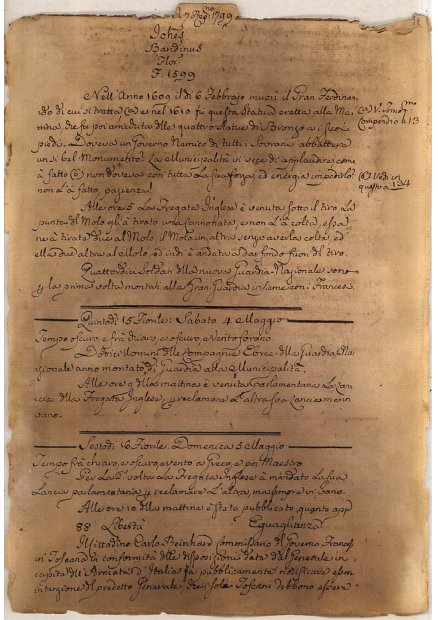 1799
Johēs
Bandinus
Flor.
F. 1599
Nell' Anno 1609 il dì 6 Febbrajo morì il Gran Ferdinan=
do di cui si tratta (a) e nel 1610 fù questa Statua eretta alla Ma=
rina, che fà poi arrichita delle quattro Statue di Bronzo a i suoi
piedi. Doveva un Governo Nemico di tutti i Sovrani abbattere
un sì bel Monumento! La Municipalità in vece di applaudire, come
à fatto (b) non doveva con tutta La sua forza, ed energia impedirlo
non L'à fatto, pazienza!
(a) V. Tomo
Compendio a 13
(b) Vedi in
questo a 134
Alle ore 5 La Fregata Inglese è venuta sotto il tiro La
punta del Molo gli à tirato una cannonata, e non L'à colta, essa
ne à tirate due al Molo, il Molo un altra senza averla colta, ed
ella due altre al Molo, ed indi è andata a dar fondo fuori del tiro.
Quattordici Soldati della nuova Guardia-Nazionale sono
p la prima volta montati alla Gran Guardia insieme con i Francesi.
Quintodì 15 Fiorile: Sabato 4 Maggio
Tempo oscuro e frà chiaro, e oscuro, e vento forano
Dodici Uomini delle Compagnie Ebree della Guardia-Na=
zionale anno montato di Guardia alla Municipalità.
Alle ore 9 della mattina è venuta parlamentaria La Lan=
cia della Fregata Inglese, p reclamare L'altra sua Lancia ma in
vano.
Sestodì 16 Fiorile: Domenica 5 Maggio
Tempo frà chiaro, e oscuro, e vento a Greco e poi Maestro
Per La 2ª volta La Fregata Inglese à mandato La sua
Lancia parlamentaria p reclamare L'altra, ma sempre in vano.
Alle ore 10 della mattina è stata pubblicato, quanto app.
88 Libertà Eguaglianza
Il Cittadino Carlo Reinhard Commissario del Governo Francese
in Toscana in conformità delle disposizioni date dal Generale in
capite dell' Armata d'Italia fa pubblicamente notificare esser
intenzione del predetto Generale, che i soli Toscani debbono essere